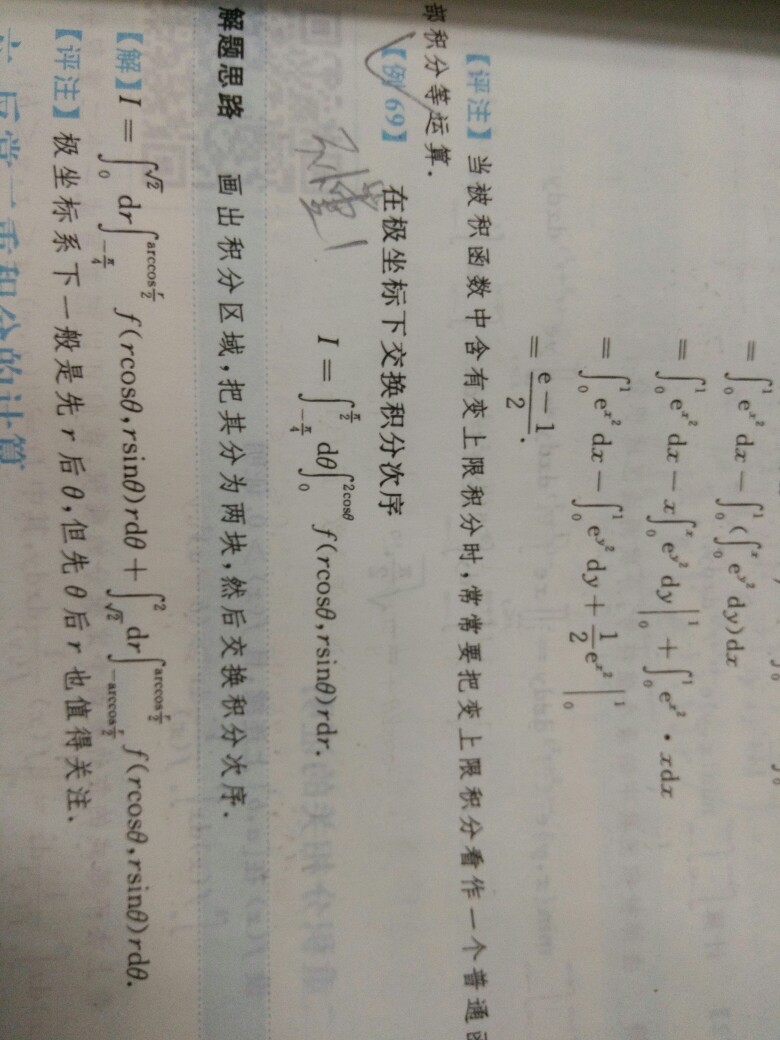 = ∫₀¹ e^{x²} dx − ∫₀¹ (∫₀ˣ e^{y²} dy) dx
= ∫₀¹ e^{x²} dx − x∫₀ˣ e^{y²} dy |₀¹ + ∫₀¹ e^{x²} · xdx
= ∫₀¹ e^{x²} dx − ∫₀¹ e^{y²} dy + 1/2 e^{x²} |₀¹
= (e − 1)/2.
【评注】 当被积函数中含有变上限积分时,常常要把变上限积分看作一个普通
部积分等运算.
【例 69】 在极坐标下交换积分次序
I = ∫_{−π/4}^{π/2} dθ ∫₀^{2cosθ} f(rcosθ,rsinθ)rdr.
解题思路 画出积分区域,把其分为两块,然后交换积分次序.
【解】 I = ∫₀^{√2} dr ∫_{−π/4}^{arccos r/2} f(rcosθ,rsinθ)rdθ + ∫_{√2}^{2} dr ∫_{−arccos r/2}^{arccos r/2} f(rcosθ,rsinθ)rdθ.
【评注】 极坐标系下一般是先 r 后 θ,但先 θ 后 r 也值得关注.
反常二重积分的计算